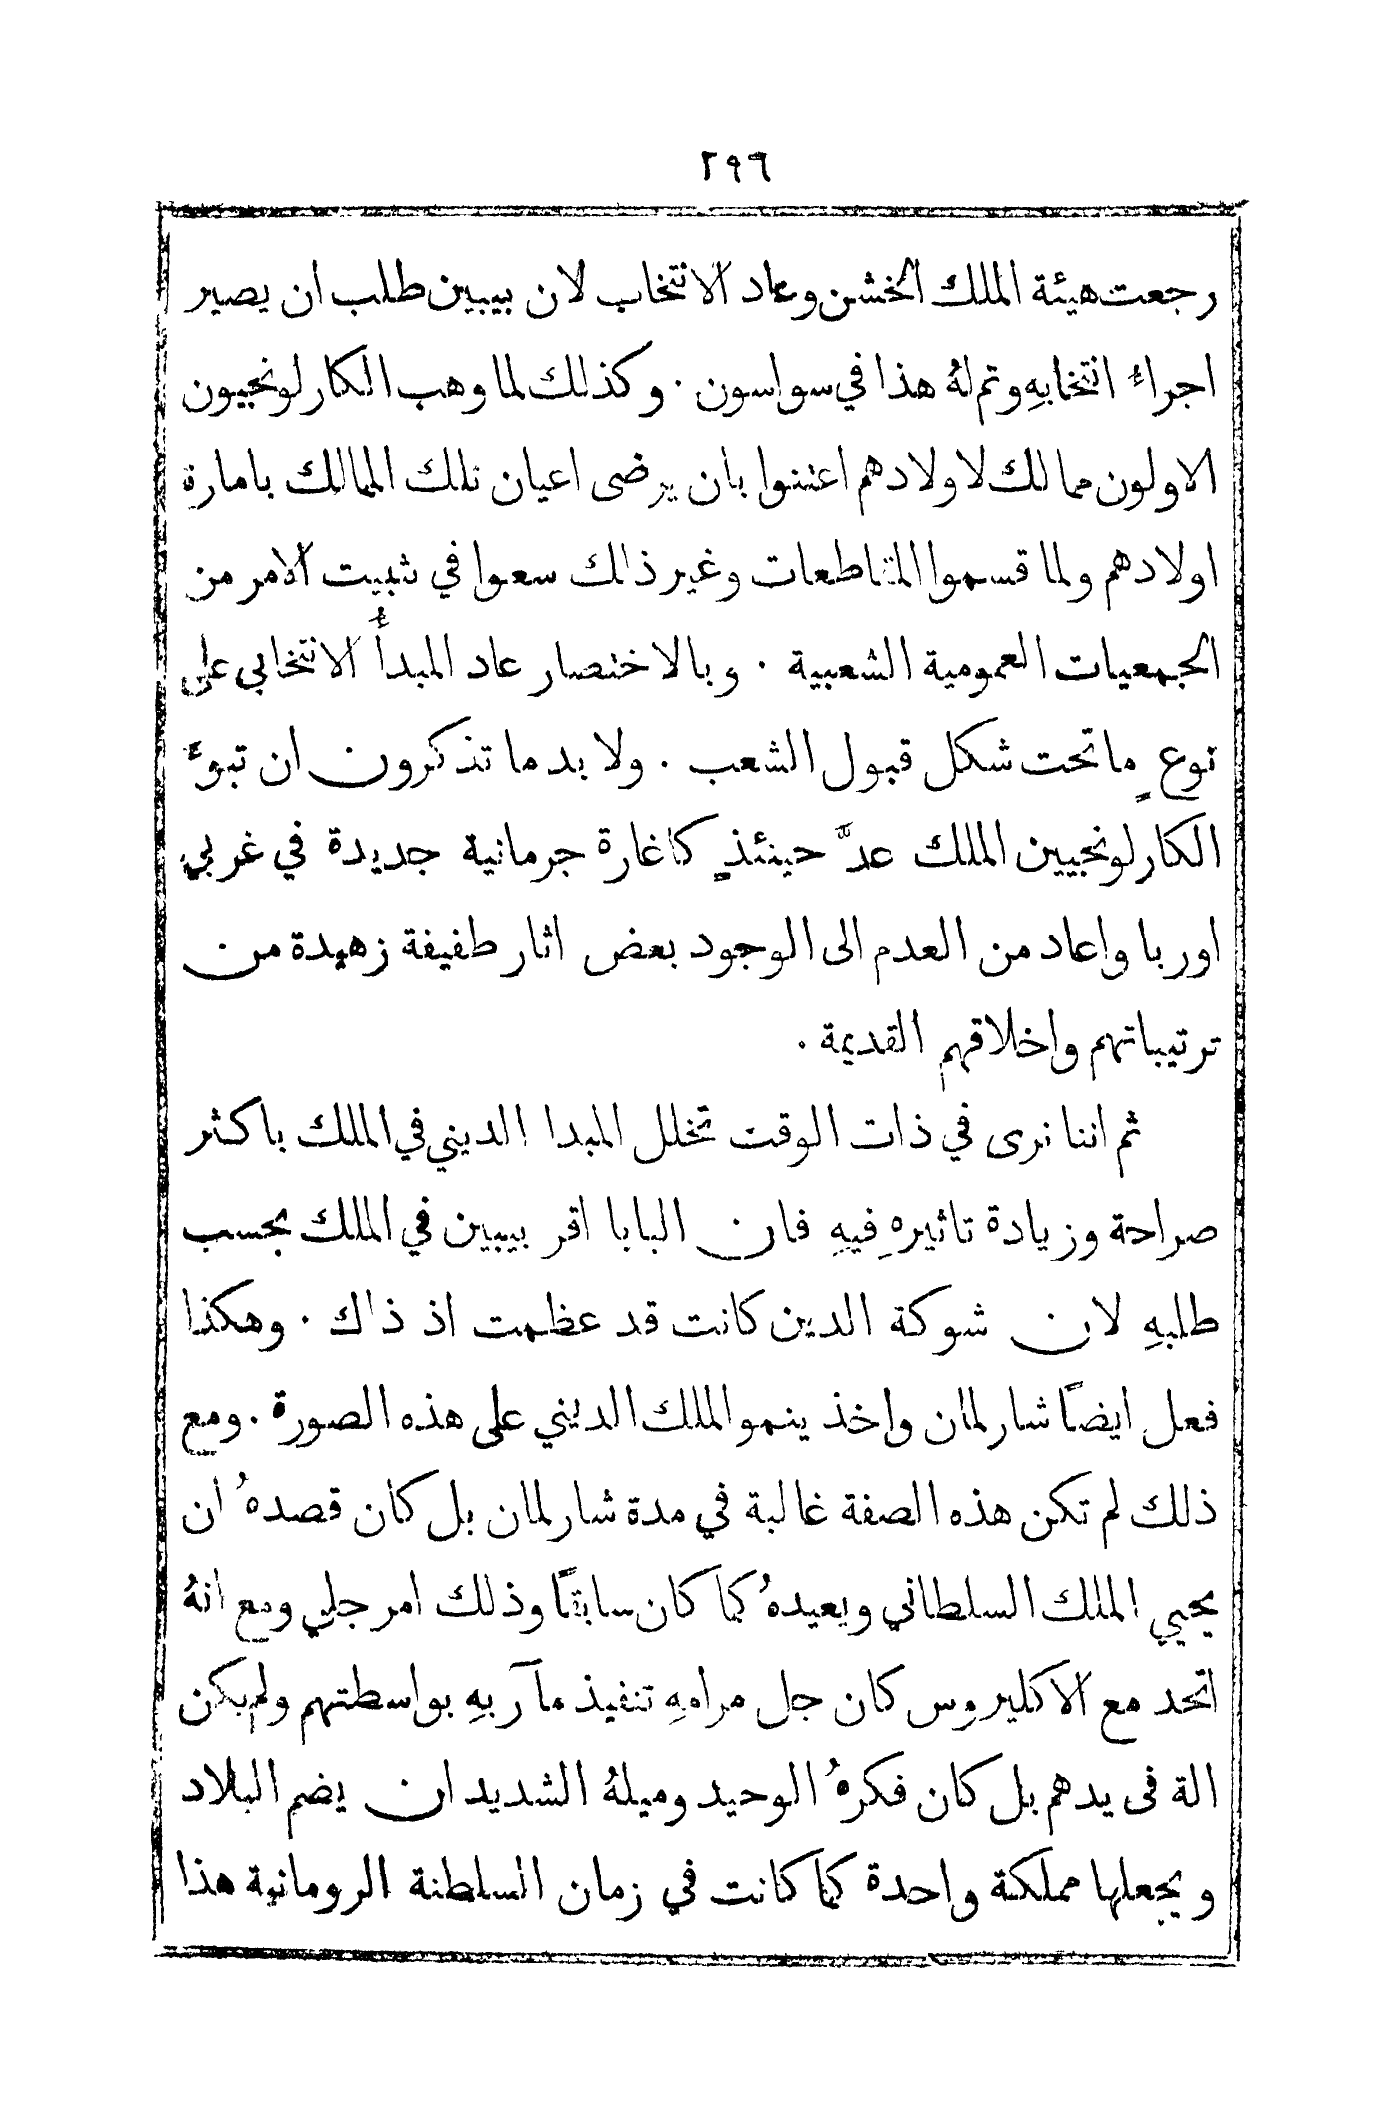 ٢٩٦
رجعت هيئة الملك الخشن وعاد الانتخاب لان بيبين طلب ان يصير
اجراءُ انتخابهِ وتم لهُ هذا في سواسون . وكذلك لما وهب الكارلونجيون
الاولون ممالك لاولادهم اعتنوا بان يرضى اعيان تلك الممالك بامارة
اولادهم ولما قسموا المقاطعات وغير ذلك سعوا في تثبيت الامر من
الجمعيات العمومية الشعبية . وبالاختصار عاد المبدأُ الانتخابي على
نوعٍ ما تحت شكل قبول الشعب . ولا بد ما تذكرون ان تبوءَ
الكارلونجيين الملك عدَّ حينئذٍ كاغارة جرمانية جديدة في غربي
اوربا واعاد من العدم الى الوجود بعض اثار طفيفة زهيدة من
ترتيباتهم واخلاقهم القديمة .
ثم اننا نرى في ذات الوقت تخلل المبدا الديني في الملك باكثر
صراحة وزيادة تاثيرهِ فيهِ فان البابا اقر بيبين في الملك بحسب
طلبهِ لان شوكة الدين كانت قد عظمت اذ ذاك . وهكذا
فعل ايضًا شارلمان واخذ ينمو الملك الديني على هذه الصورة . ومع
ذلك لم تكن هذه الصفة غالبة في مدة شارلمان بل كان قصدهُ ان
يحيي الملك السلطاني ويعيدهُ كما كان سابقًا وذلك امر جلي ومع انهُ
اتحد مع الاكليروس كان جل مرامهِ تنفيذ مآربهِ بواسطتهم ولم يكن
الة في يدهم بل كان فكرهُ الوحيد وميلهُ الشديد ان يضم البلاد
ويجعلها مملكة واحدة كما كانت في زمان السلطنة الرومانية هذا